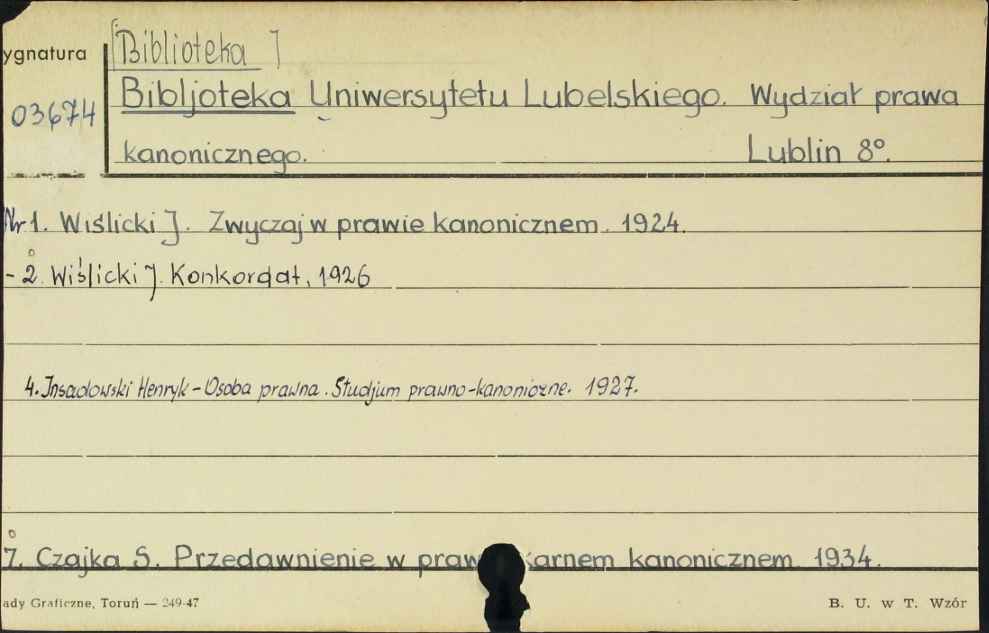 [Biblioteka]
ygnatura
03674
Bibljoteka Uniwersytetu Lubelskiego. Wydział prawa
kanonicznego. Lublin 8°.
Nr 1. Wiślicki J. Zwyczaj w prawie kanonicznem. 1924.
- 2. Wiślicki J. Konkordat, 1926
4. Insadowski Henryk - Osoba prawna. Studjum prawno-kanoniczne. 1927.
7. Czajka S. Przedawnienie w praw karnem kanonicznem. 1934.
ady Graficzne, Toruń — 249-47 B. U. w T. Wzór